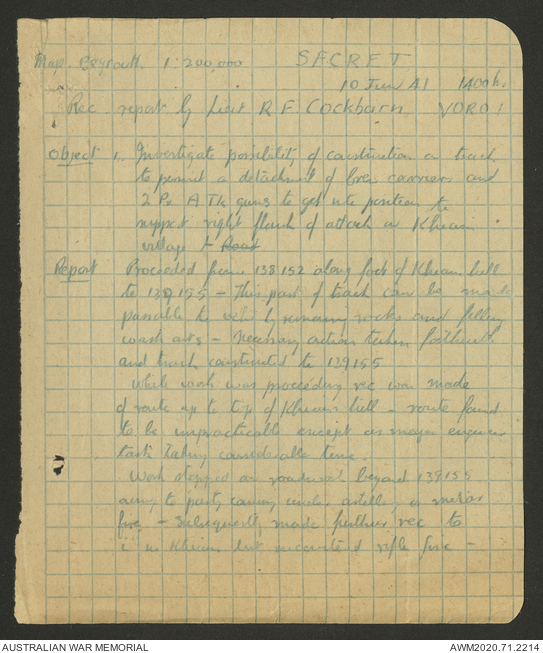 Map Beyrouth 1:200,000 SECRET
10 Jun 41 1400h.
Rec report by Lieut R F Cockburn VDRO1
Object 1. Investigate possibility of construction a track
to permit a detachment of bren carriers and
2 Pr A Tk guns to get into position to
support right flank of attack on Khiam
village
Report Proceeded from 138152 along foot of Khiam hill
to 139155 – This part of track can be made
passable to by removing rocks and filling
wash outs – Necessary action taken forthwith
and track constructed to 139155
While work was proceeding rec was made
of route up to top of Khiam hill – route found
to be impracticable except as major engineer
task taking considerable time.
Work stopped on roadwork beyond 139155
owing to party coming under artillery or mortar
fire – Subsequently made further rec to
in Khiam but encountered rifle fire –
AUSTRALIAN WAR MEMORIAL AWM2020.71.2214